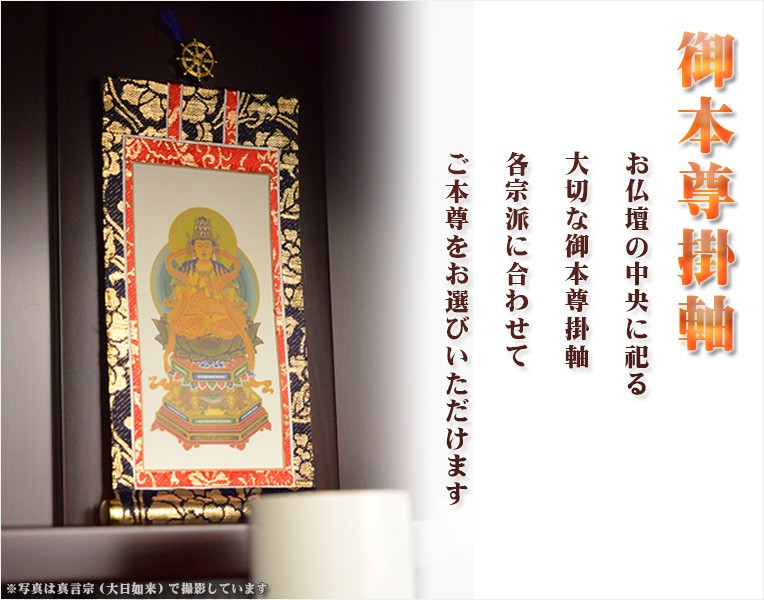 御本尊掛軸
お仏壇の中央に祀る
大切な御本尊掛軸
各宗派に合わせて
ご本尊をお選びいただけます
※写真は真言宗（大日如来）で撮影しています